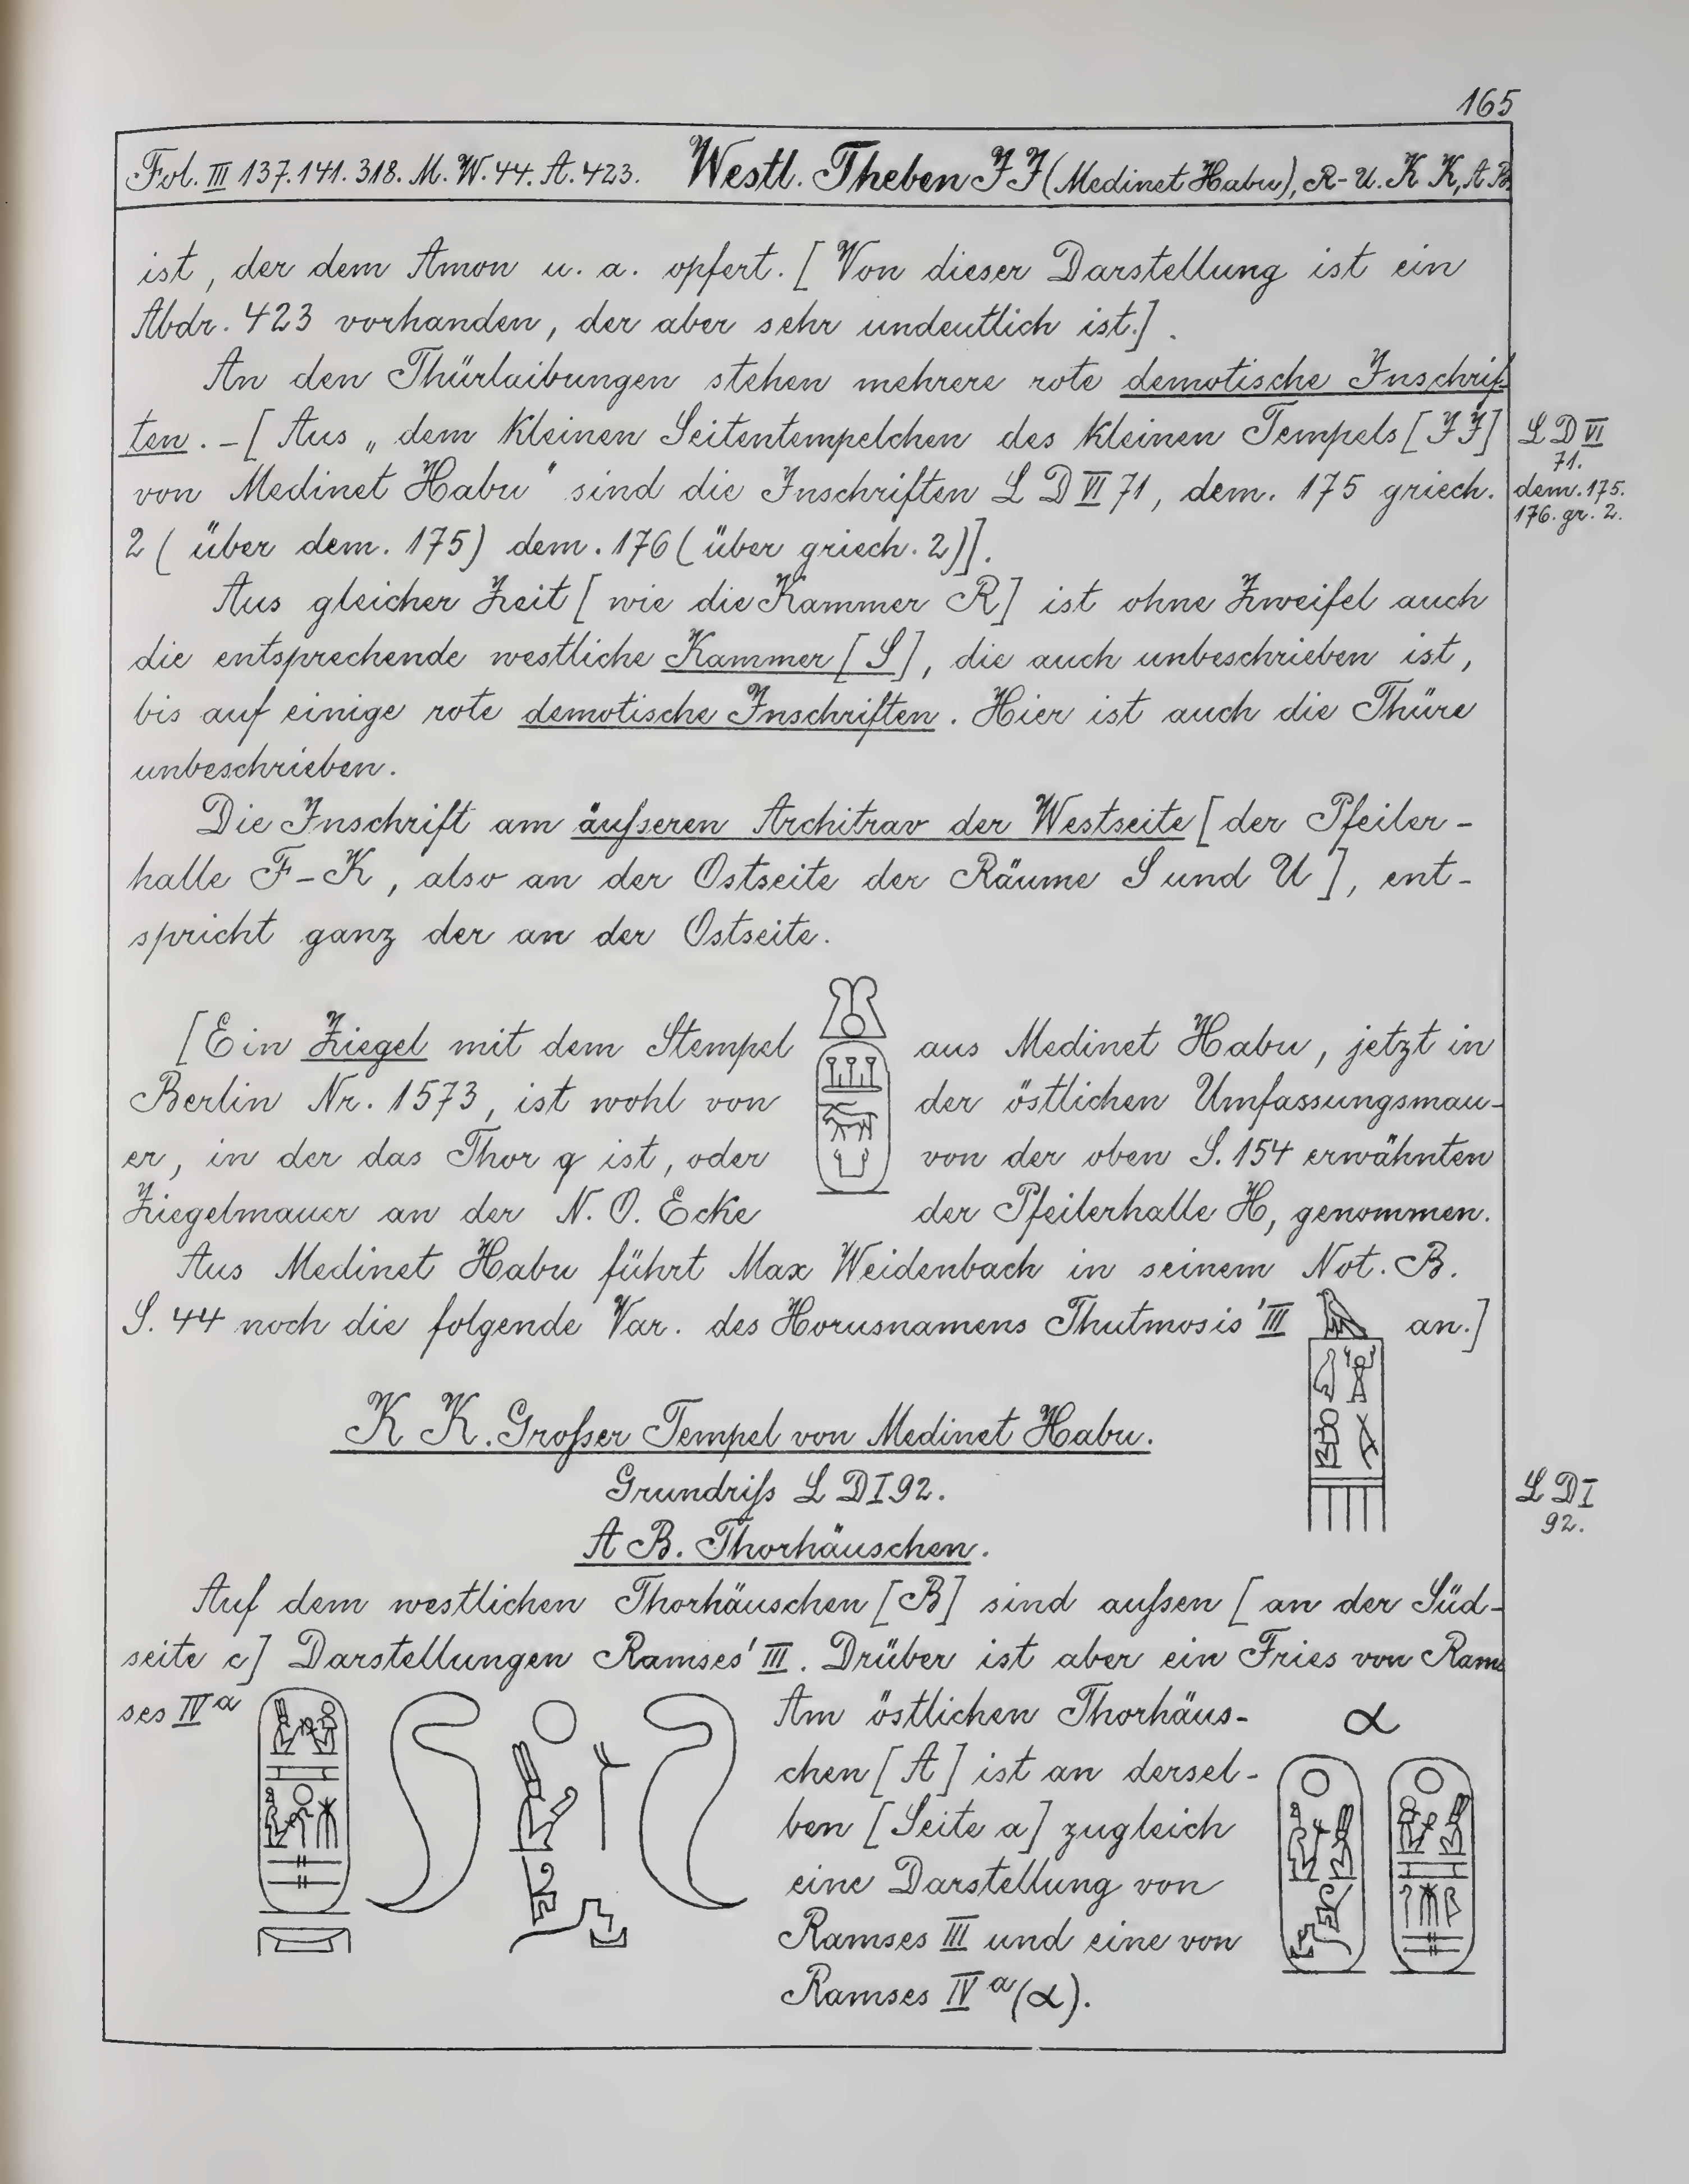 165
Fol. III 137. 141. 318. M. W. 44. A. 423. Westl. Theben JJ (Medinet Habu), R-U. KK, AB
ist, der dem Amon u. a. opfert. [Von dieser Darstellung ist ein
Abdr. 423 vorhanden, der aber sehr undeutlich ist.].
An den Thürlaibungen stehen mehrere rote demotische Inschrif-
ten. - [Aus „dem kleinen Seitentempelchen des kleinen Tempels [JJ]
LD VI
71.
von Medinet Habu" sind die Inschriften LD VI 71, dem. 175 griech.
dem. 175.
176. gr. 2.
2 (über dem. 175) dem. 176 (über griech. 2)].
Aus gleicher Zeit [wie die Kammer R] ist ohne Zweifel auch
die entsprechende westliche Kammer [S], die auch unbeschrieben ist,
bis auf einige rote demotische Inschriften. Hier ist auch die Thüre
unbeschrieben.
Die Inschrift am äußeren Architrav der Westseite [der Pfeiler-
halle F-K, also an der Ostseite der Räume S und U], ent-
spricht ganz der an der Ostseite.
[Ein Ziegel mit dem Stempel aus Medinet Habu, jetzt in
Berlin Nr. 1573, ist wohl von der östlichen Umfassungsmau-
er, in der das Thor q ist, oder von der oben S. 154 erwähnten
Ziegelmauer an der N. O. Ecke der Pfeilerhalle H, genommen.
Aus Medinet Habu führt Max Weidenbach in seinem Not. B.
S. 44 noch die folgende Var. des Horusnamens Thutmosis' III an.]
KK. Großer Tempel von Medinet Habu.
Grundriß LD I 92.
LD I
92.
A B. Thorhäuschen.
Auf dem westlichen Thorhäuschen [B] sind außen [an der Süd-
seite c] Darstellungen Ramses' III. Drüber ist aber ein Fries von Ram-
ses IVa
Am östlichen Thorhäus-
chen [A] ist an dersel-
ben [Seite a] zugleich
eine Darstellung von
Ramses III und eine von
Ramses IVa (α).
α